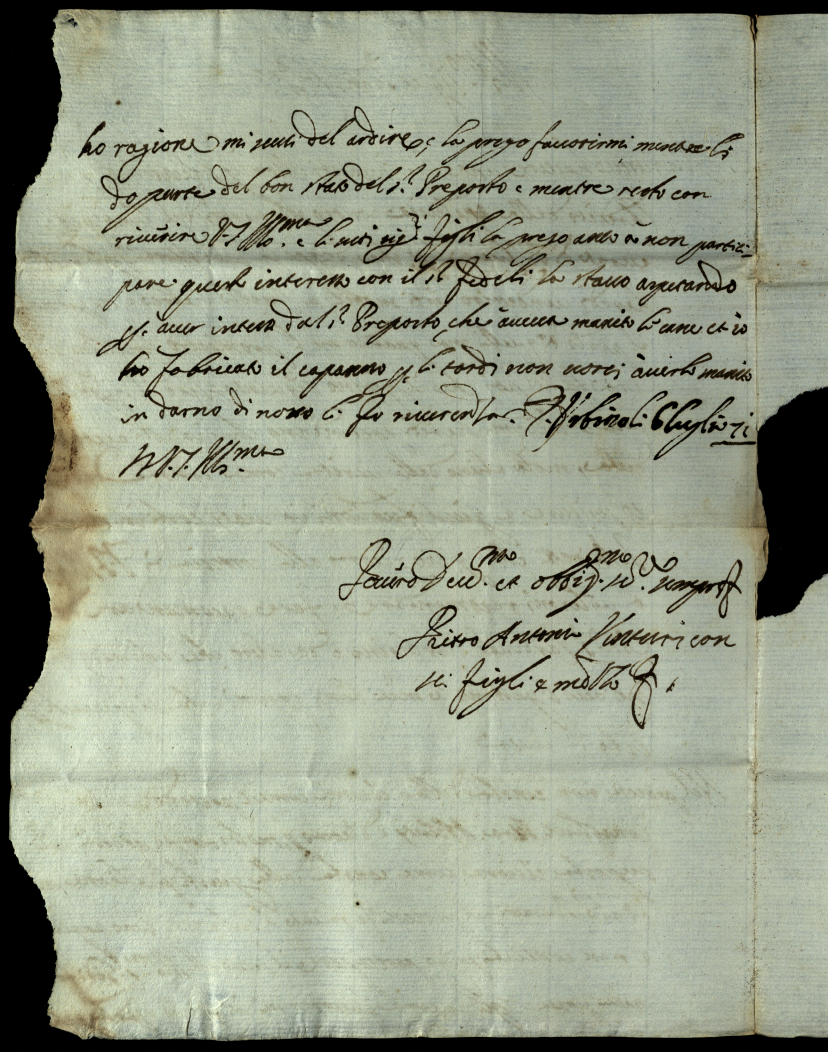 ho ragione mi scusi del ardire, e la prego favorirmi mentre li
do parte del bon stato del S.r Preposto e mentre resto con
riverire V.S. Ill.ma e li suoi figli la prego anco à non partici-
pare questi interessi con il S.r Fedeli lo stavo aspetando
p. aver inteso dal S.r Preposto, che aveva manito le et io
hò fabricato il capanno p. li tordi non vorei averlo manito
in darno di novo li fo riverenza. Urbino li 6 luglio
D V.S. Ill.ma
Dev.mo et obblig.mo se.r sempre
Pietro Antonio Venturi con
si figli e